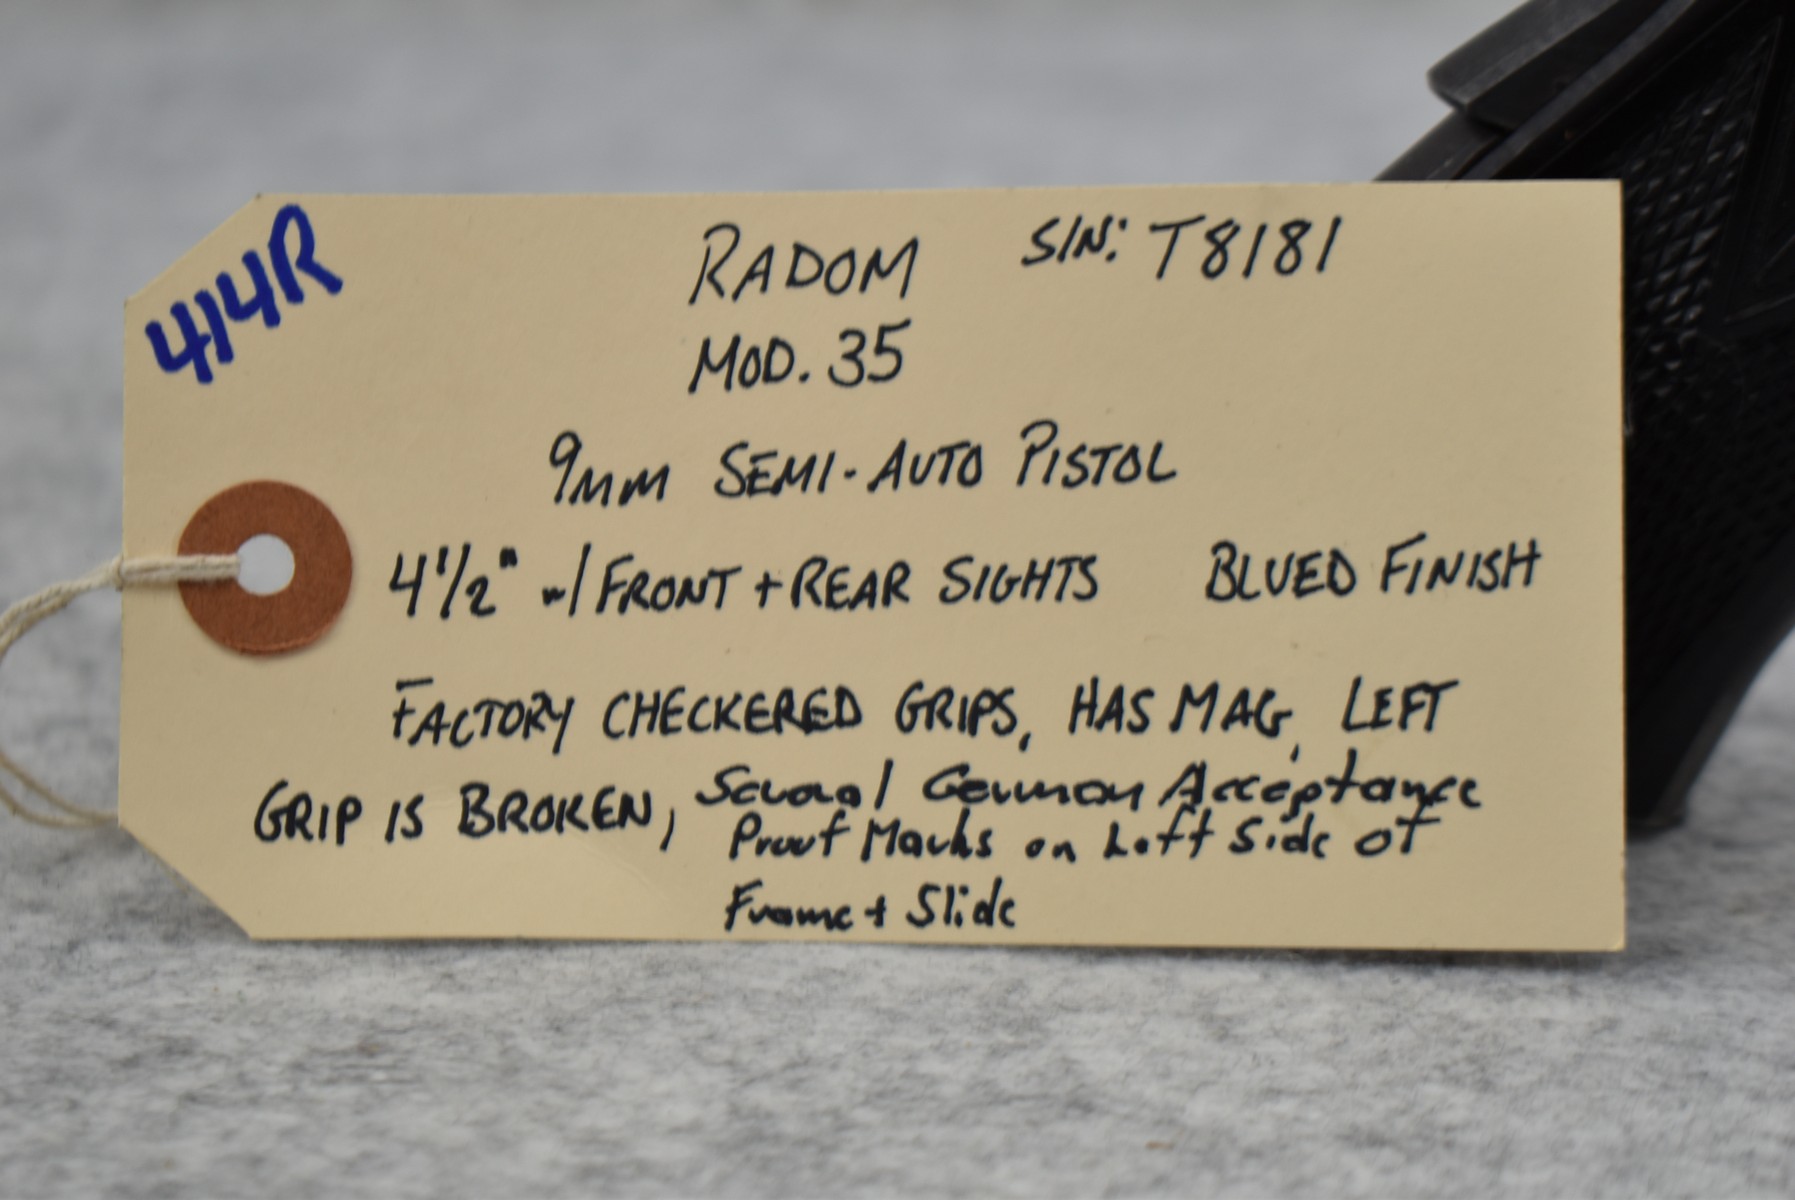 414R
RADOM S/N: T8181
MOD. 35
9mm SEMI-AUTO PISTOL
4 1/2" w/ FRONT + REAR SIGHTS BLUED FINISH
FACTORY CHECKERED GRIPS, HAS MAG, LEFT
GRIP IS BROKEN, Several German Acceptance
Proof Marks on Left Side of
Frame + Slide